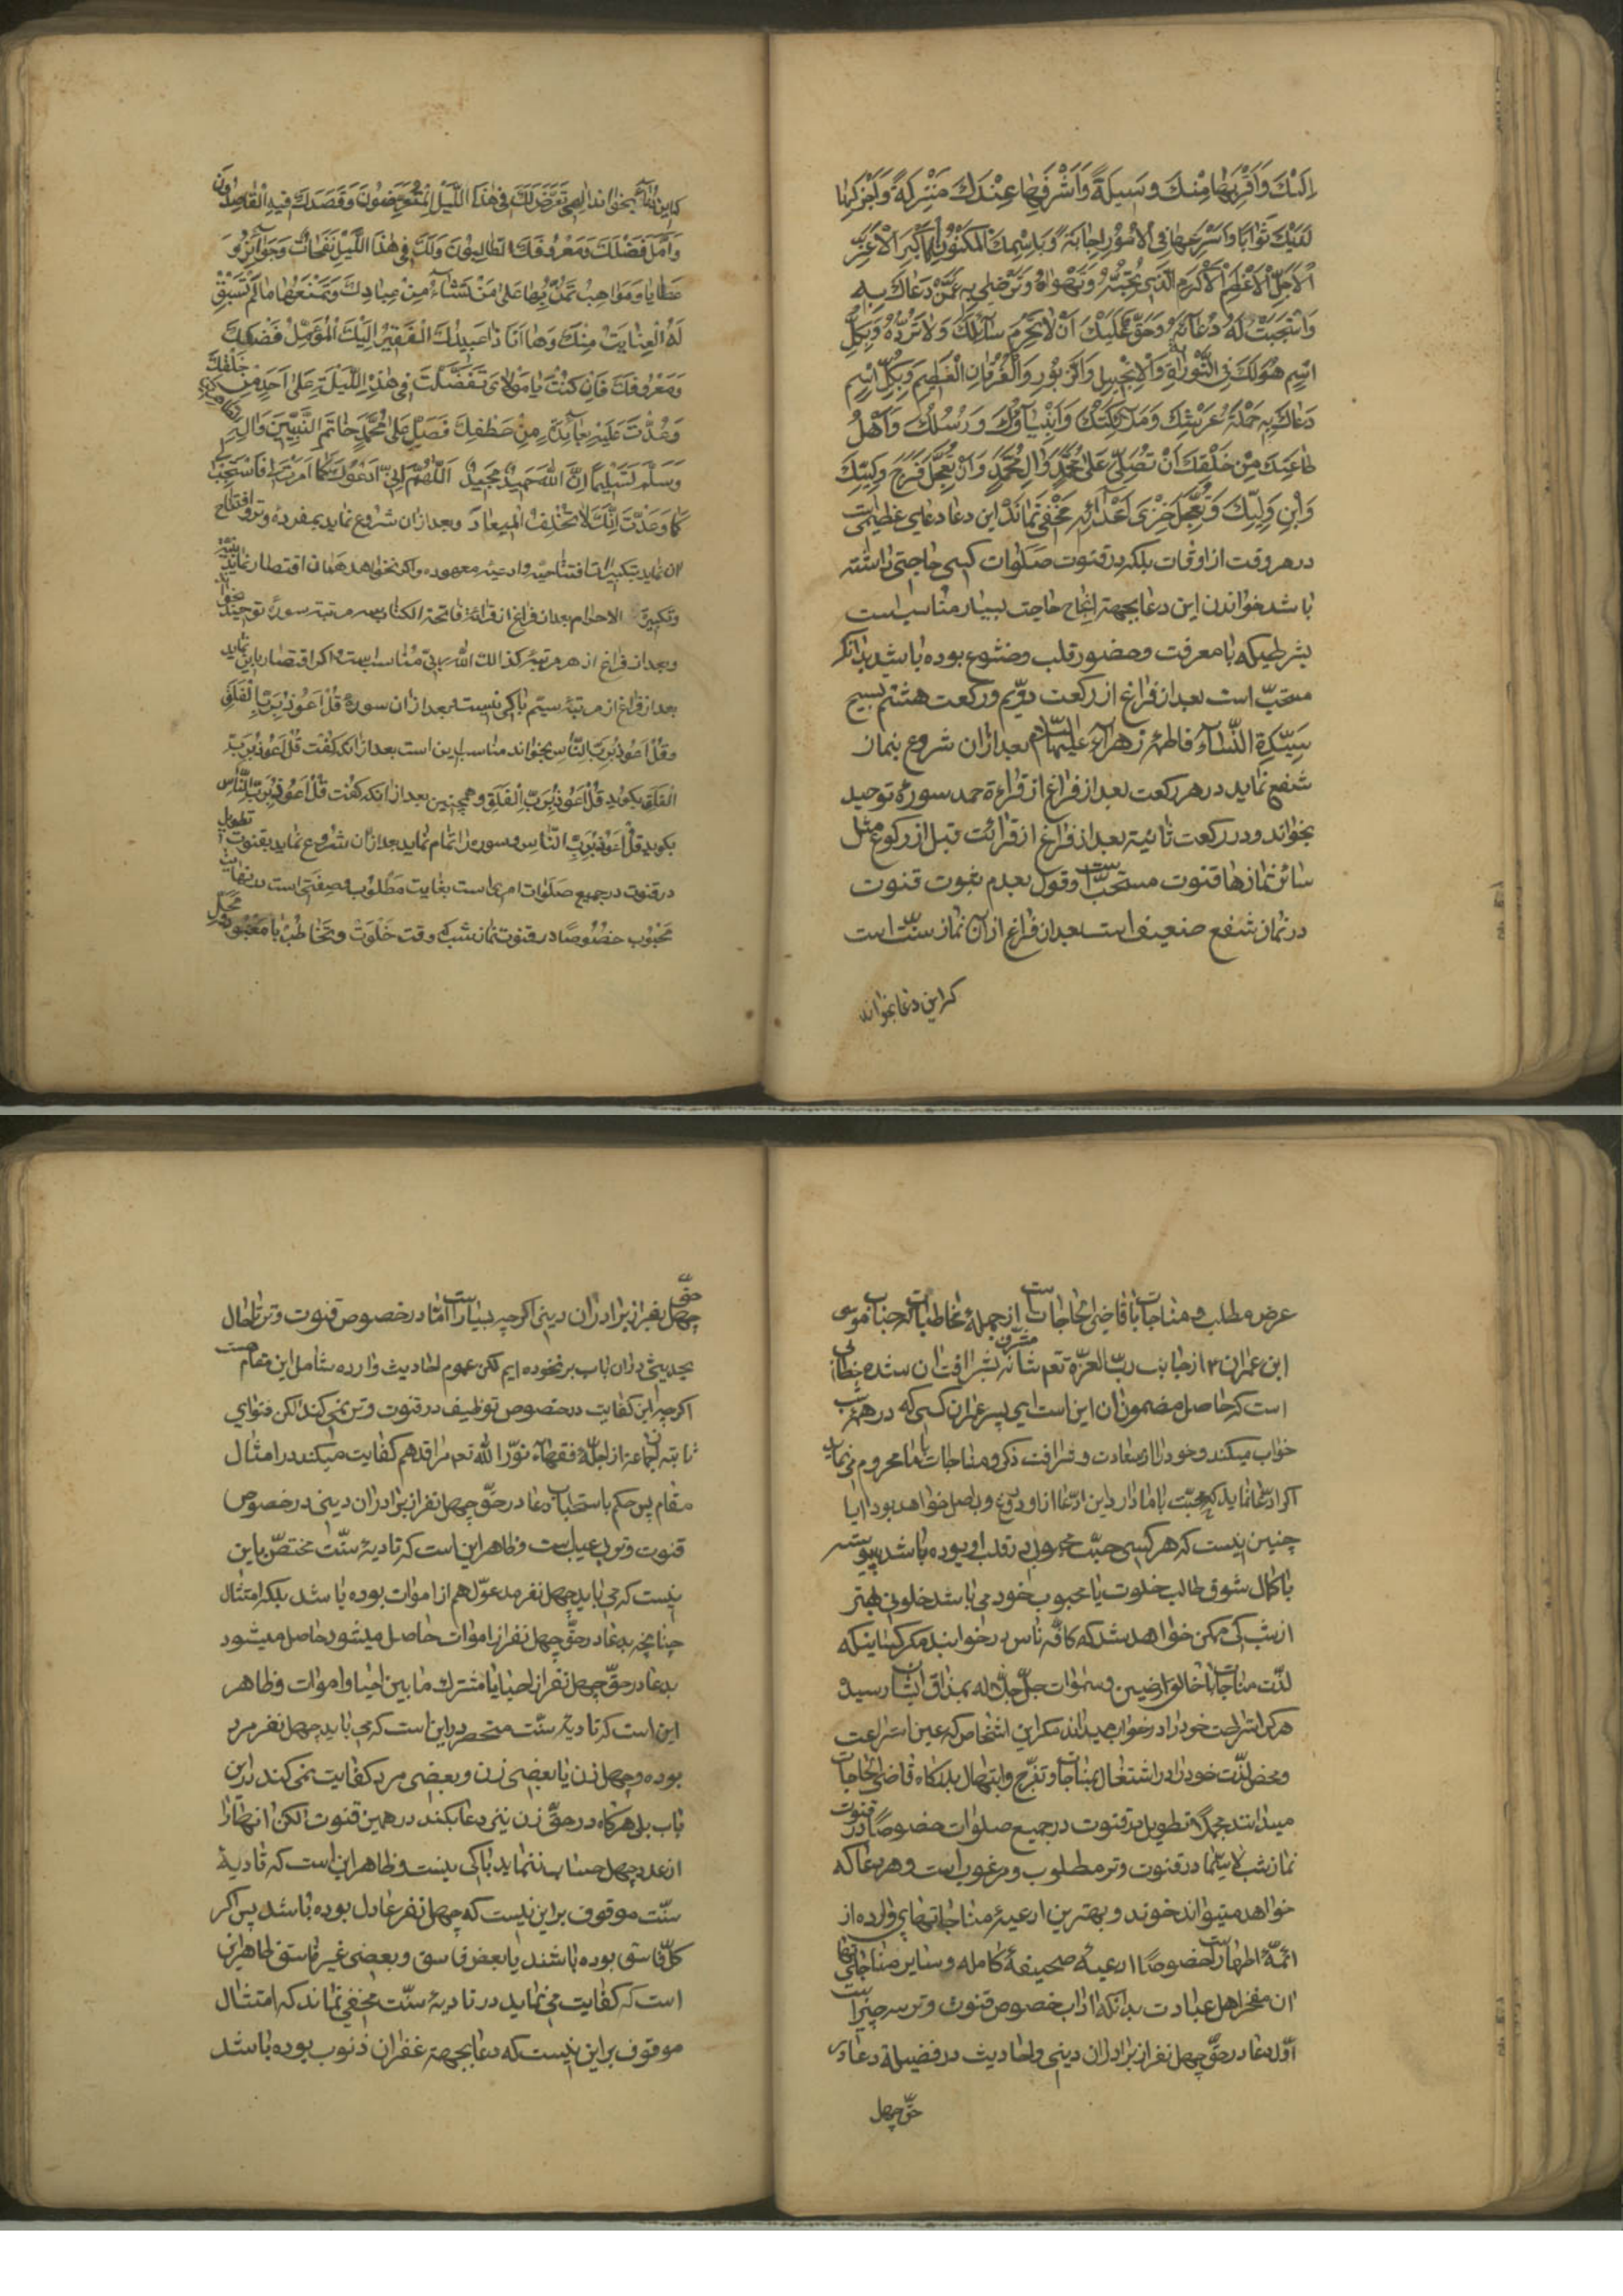 اِلَیْكَ وَاَقْرَبِهَا مِنْكَ وَسیلَةً وَاَشْرَفِهَا عِنْدَكَ مَنْزِلَةً وَاَجْزَلِهَا
لَدَیْكَ ثَوَابًا وَاَسْرَعِهَا فِی الْاُمُورِ اِجَابَةً وَبِاسْمِكَ الْمَكْنُونِ الْاَكْبَرِ الْاَعَزِّ
الْاَجَلِّ الْاَعْظَمِ الْاَكْرَمِ الَّذی تُحِبُّهُ وَتَهْوَاهُ وَتَرْضٰی بِهِ عَمَّنْ دَعَاكَ بِهِ
وَاسْتَجَبْتَ لَهُ دُعَآئَهُ وَحَقٌّ عَلَیْكَ اَنْ لَاتَحْرِمَ سَآئِلَكَ وَلَا تَرُدَّهُ وَبِكُلِّ
اسْمٍ هُوَ لَكَ فِی التَّوْرٰیةِ وَالْاِنْجیلِ وَالزَّبُورِ وَالْفُرْقَانِ الْعَظیمِ وَبِكُلِّ اسْمٍ
دَعَاكَ بِهِ حَمَلَةُ عَرْشِكَ وَمَلٰٓئِكَتُكَ وَاَنْبِیَآؤُكَ وَرُسُلُكَ وَاَهْلُ
طَاعَتِكَ مِنْ خَلْقِكَ اَنْ تُصَلِّیَ عَلٰی مُحَمَّدٍ وَاٰلِ مُحَمَّدٍ وَاَنْ تُعَجِّلَ فَرَجَ وَلِیِّكَ
وَابْنِ وَلِیِّكَ وَتُعَجِّلَ خِزْیَ اَعْدَآئِهِ مخفی نماند این دعا دعای عظیمی است
در هر وقت از اوقات بلکه در قنوت صلوات کسی حاجتی داشته
باشد خواندن این دعا بجهة انجاح حاجت بسیار مناسب است
بشرطیکه با معرفت وحضور قلب وخشوع بوده باشد بدانکه
مستحبّ است بعد از فراغ از رکعت دوّیم ورکعت هشتم تسبیح
سیّدة النّسآء فاطمۀ زهرآء علیهما السّلام بعد ازان شروع بنماز
شفع نماید در هر رکعت بعد از فراغ از قراءة حمد سورۀ توحید
بخواند ودر رکعت ثانیة بعد از فراغ از قرائت قبل از رکوع مثل
سائر نمازها قنوت مستحبّ است وقول بعدم ثبوت قنوت
در نماز شفع ضعیف است بعد از فراغ از آن نماز سنّت است
که این دعا بخواند
که این دعا بخواند اِلٰهی تَعَرَّضَ لَكَ فی هٰذَا اللَّیْلِ الْمُتَعَرِّضُونَ وَقَصَدَكَ فیهِ الْقَاصِدُونَ
وَاَمَّلَ فَضْلَكَ وَمَعْرُوفَكَ الطَّالِبُونَ وَلَكَ فی هٰذَا اللَّیْلِ نَفَحَاتٌ وَجَوَآئِزُ وَ
عَطَایَا وَمَوَاهِبُ تَمُنُّ بِهَا عَلٰی مَنْ تَشَآءُ مِنْ عِبَادِكَ وَتَمْنَعُهَا مَا لَمْ تَسْبِقْ
لَهُ الْعِنَایَةُ مِنْكَ وَهَا اَنَا ذَا عَبیدُكَ الْفَقیرُ اِلَیْكَ الْمُؤَمِّلُ فَضْلَكَ
وَمَعْرُوفَكَ فَاِنْ كُنْتَ یَا مَوْلَایَ تَفَضَّلْتَ فی هٰذِهِ اللَّیْلَةِ عَلٰی اَحَدٍ مِنْ خَلْقِكَ
وَعُدْتَ عَلَیْهِ بِعَآئِدَةٍ مِنْ عَطْفِكَ فَصَلِّ عَلٰی مُحَمَّدٍ خَاتَمِ النَّبِیّینَ وَاٰلِهِ
وَسَلَّمَ تَسْلیمًا اِنَّ اللّٰهَ حَمیدٌ مَجیدٌ اَللّٰهُمَّ اِنّی اَدْعُوكَ كَمَا اَمَرْتَ فَاسْتَجِبْ
كَمَا وَعَدْتَ اِنَّكَ لَا تُخْلِفُ الْمیعَادَ وبعد ازان شروع نماید بمفردۀ وتر وافتتاح
ان نماید بتکبیرات افتتاحیّه وادعیۀ معهوده واگر نخواهد همان اقتصار نماید بنیّة
وتکبیرة الاحرام بعد از فراغ از قرائة فاتحة الکتاب سه مرتبه سورۀ توحید بخواند
وبعد از فراغ از هر مرتبه کذالك اللّٰه ربّی مناسب است واگر اقتصار باین نماید
بعد از فراغ از مرتبۀ سیّم باکی نیست بعد ازان سورۀ قُلْ اَعُوذُ بِرَبِّ الْفَلَقِ
وقُلْ اَعُوذُ بِرَبِّ النَّاسِ بخواند مناسب این است بعد از آنکه گفت قُلْ اَعُوذُ بِرَبِّ
الْفَلَقِ بگوید قُلْ اَعُوذُ بِرَبِّ الْفَلَقِ وهمچنین بعد از آنکه گفت قُلْ اَعُوذُ بِرَبِّ النَّاسِ
بگوید قُلْ اَعُوذُ بِرَبِّ النَّاسِ وسوره را تمام نماید بعد ازان شروع نماید بقنوت تطویل
در قنوت در جمیع صلوات امری است بغایت مطلوب وصفتی است بنهایت
محبوب خصُوصًا در قنوت نماز شب که وقت خلوت وتخاطب با معبود
عرض مطلب ومناجات با قاضی الحاجات است از جملۀ مخاطبات که جناب موسی
ابن عمران ع از جانب ربّ العزّة تعم شانه بشرافت ان مشرّف شده خطابی
است که حاصل مضمون ان این است ای پسر عمران کسی که در همۀ شب
خواب میکند وخود را از سعادت وشرافت ذکر ومناجات با ما محروم می نماید
اگر ادّعا نماید که محبّت با ما دارد این ادّعا از او دروغ وبی اصل خواهد بود ایا
چنین نیست که هر کسی حبّ محبوبی در قلب او بوده باشد پیوسته
با کمال شوق طالب خلوت با محبوب خود می باشد خلوتی بهتر
از شب کی ممکن خواهد شد که کافّه ناس در خوابند مگر کسانیکه
لذّت مناجات با خالق ارضین وسموات جلّ جلاله بمذاق ایشان رسیده
هر کس استراحت خود را در خواب میداند مگر این اشخاص که عین استراحت
ومحض لذّت خود را در اشتغال بمناجات وتضرّع وابتهال بدرگاه قاضی الحاجات
میدانند مجملًا تطویل در قنوت در جمیع صلوات خصوصًا در قنوت
نماز شب لا سیّما در قنوت وتر مطلوب ومرغوب است وهر دعا که
خواهد میتواند خوند وبهترین ادعیۀ مناجاتهای وارده از
ائمّۀ اطهار است خصوصًا ادعیۀ صحیفۀ کامله وسایر مناجاتهای
ان مفخر اهل عبادت بدانکه اداب خصوص قنوت وتر سه چیز است
اوّل دعا در حقّ چهل نفر از برادران دینی واحادیث در فضیلة دعا در
حقّ چهل
حقّ چهل نفر از برادران دینی اگر چه بسیار است امّا در خصوص قنوت وتر تا حال
بحدیثی دران باب بر نخورده ایم لکن عموم احادیث وارده شامل این مقام هست
اگر چه این کفایت در خصوص توظیف در قنوت وتر نمی کند لکن فتوای
ثابته از جماعة از اجلّۀ فقهآء نوّر اللّٰه تعم مراقدهم کفایت میکند در امثال
مقام پس حکم باستحباب دعا در حقّ چهل نفر از برادران دینی در خصوص
قنوت وتر بی عیب است وظاهر این است که تادیۀ سنّت مختصّ باین
نیست که می باید چهل نفر مدعوّ لهم از اموات بوده باشد بلکه امتثال
چنانچه بدعا در حقّ چهل نفر از اموات حاصل میشود حاصل میشود
بدعا در حقّ چهل نفر از احیا یا مشترك ما بین احیا واموات وظاهر
این است که تادیۀ سنّت منحصر در این است که می باید چهل نفر مرد
بوده وچهل زن یا بعضی زن وبعضی مرد کفایت نمی کند در این
باب بلی هرگاه در حقّ زن نیز دعا بکند در همین قنوت لکن انها را
از عدد چهل حساب ننماید باکی نیست وظاهر این است که تادیۀ
سنّت موقوف بر این نیست که چهل نفر عادل بوده باشد پس اگر
کلّ فاسق بوده باشند یا بعض فاسق وبعضی غیر فاسق ظاهر این
است که کفایت می نماید در تادیۀ سنّت مخفی نماند که امتثال
موقوف بر این نیست که دعا بجهة غفران ذنوب بوده باشد